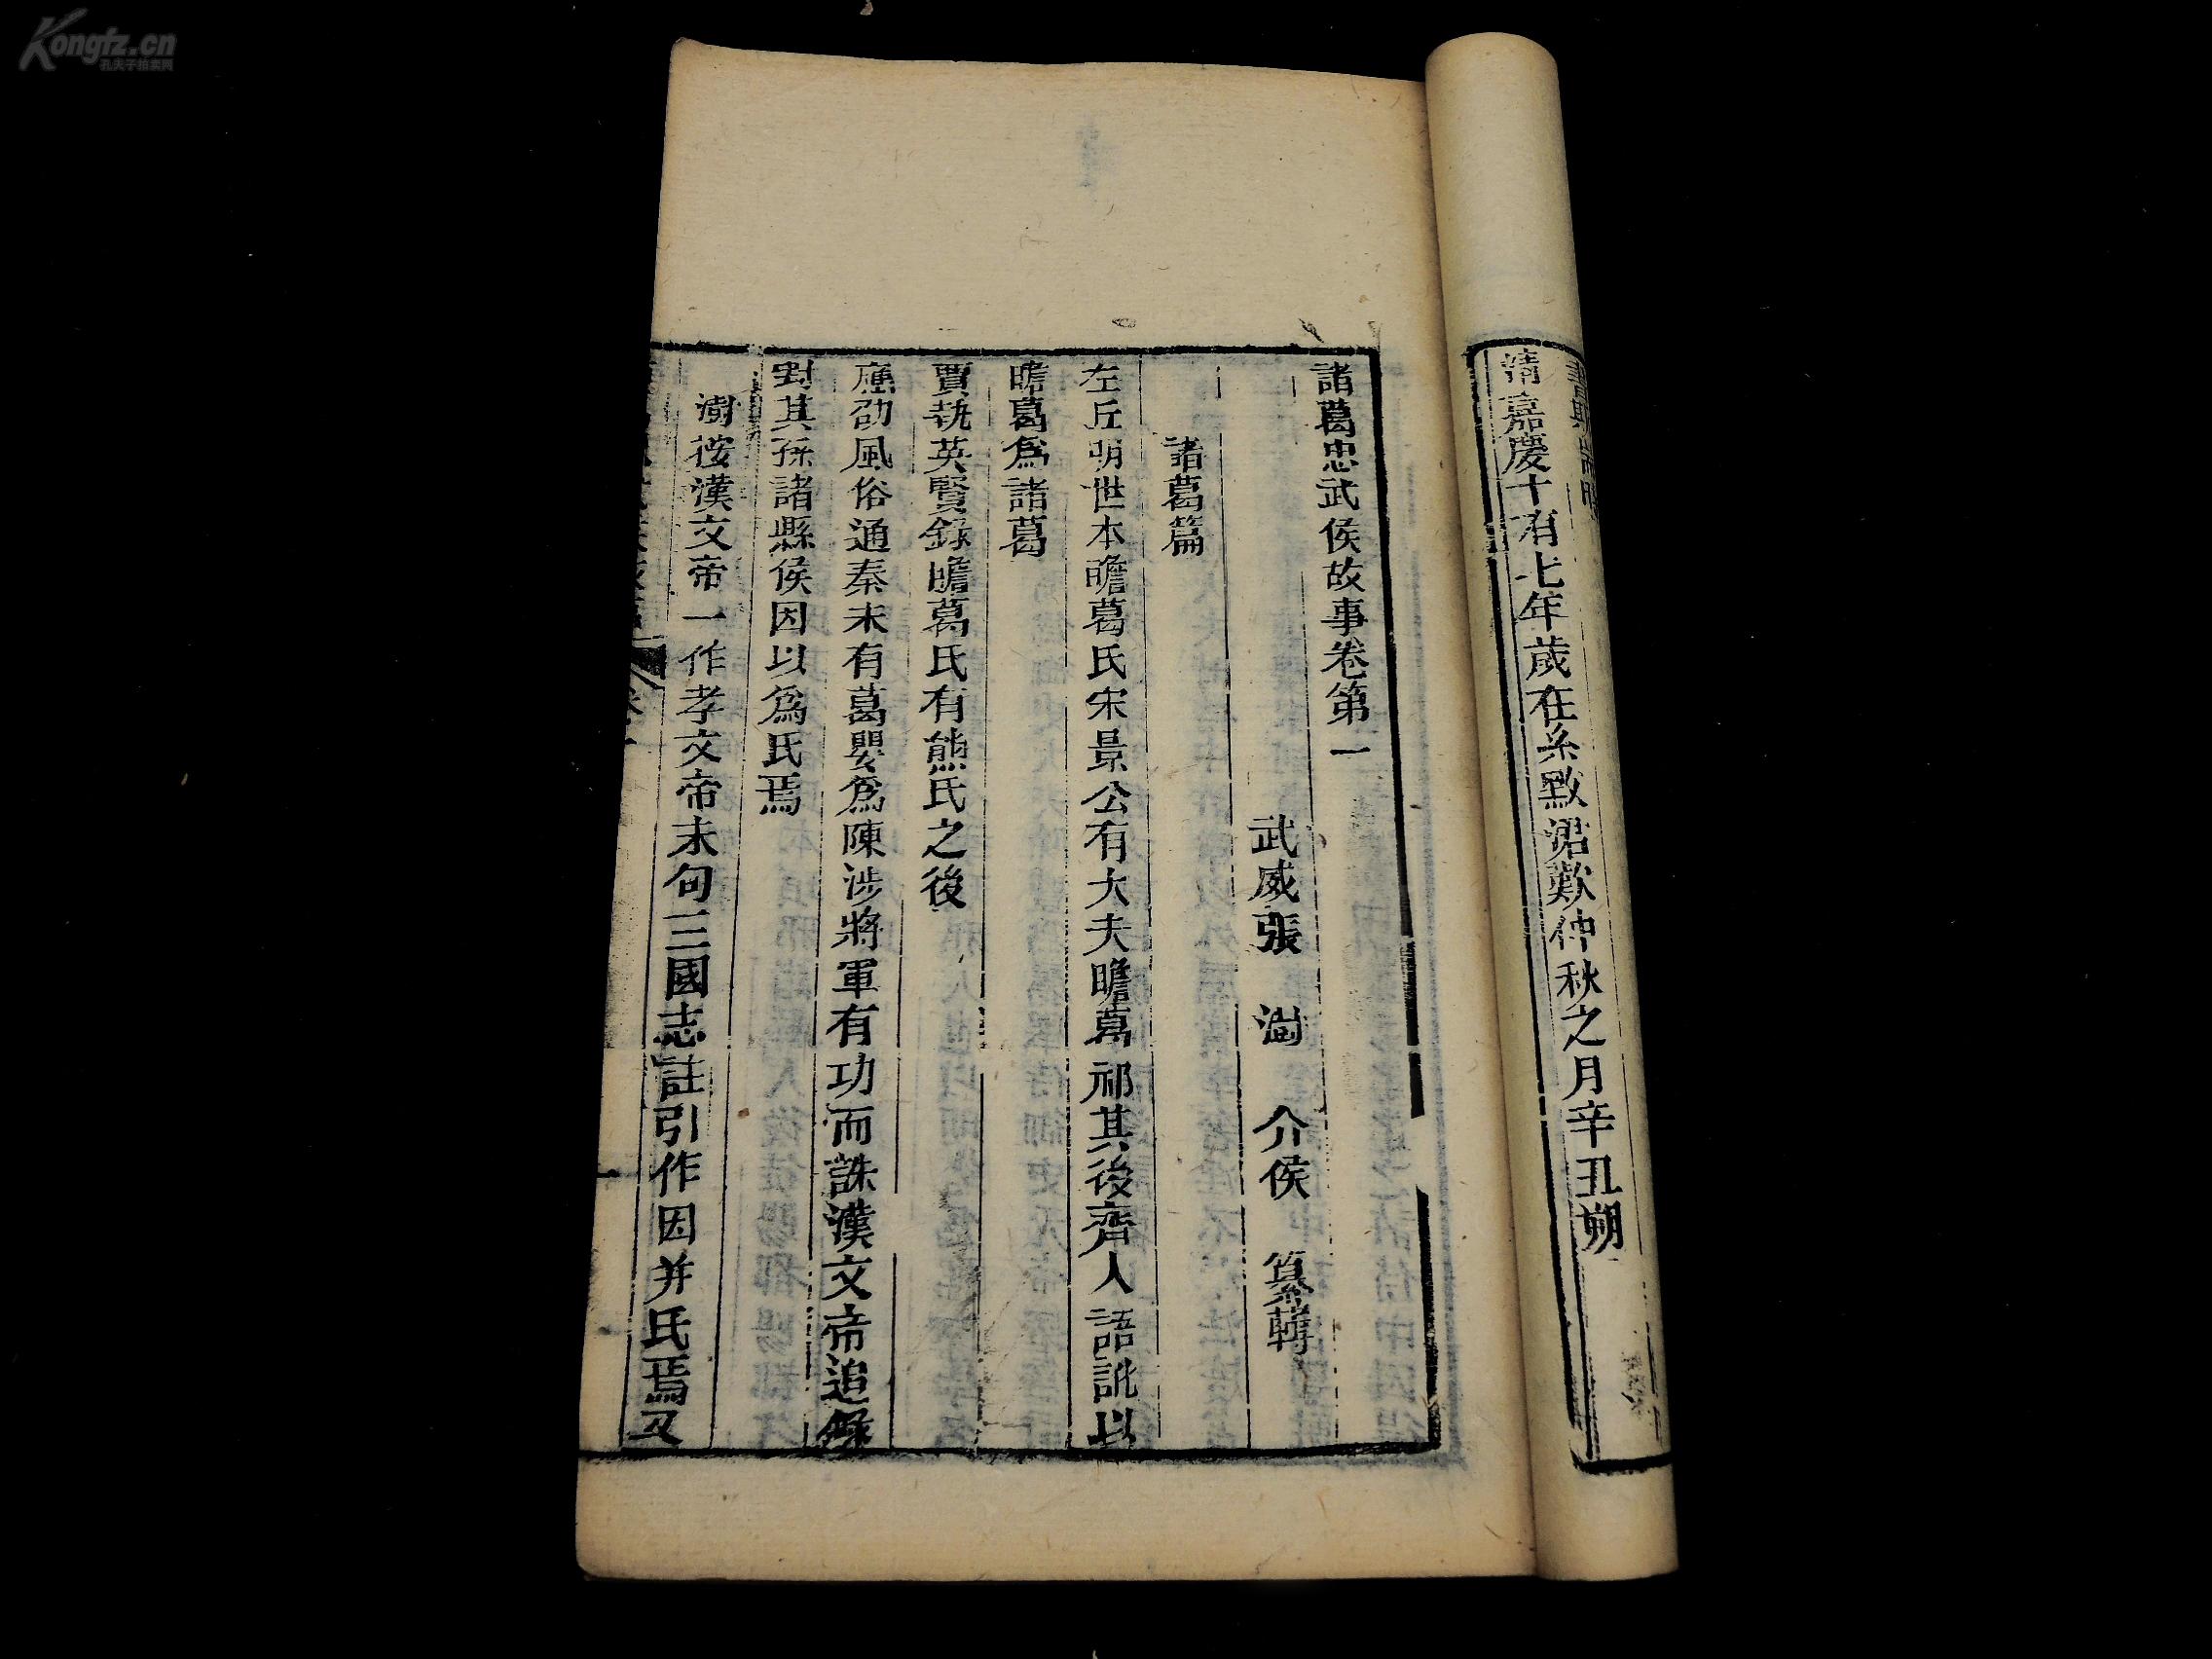 Kongfz.cn
孔夫子拍卖网
清嘉慶十有七年歲在糸𢾫涒歎仲秋之月辛丑朔
諸葛忠武侯故事卷第一
武威張澍介侯纂輯
諸葛篇
左丘明世本瞻葛氏宋景公有大夫瞻葛祁其後齊人語訛以
瞻葛爲諸葛
賈執英賢錄瞻葛氏有熊氏之後
應劭風俗通秦末有葛嬰爲陳涉將軍有功而誅漢文帝追錄
封其孫諸縣侯因以爲氏焉
澍按漢文帝一作孝文帝末句三國志註引作因并氏焉又